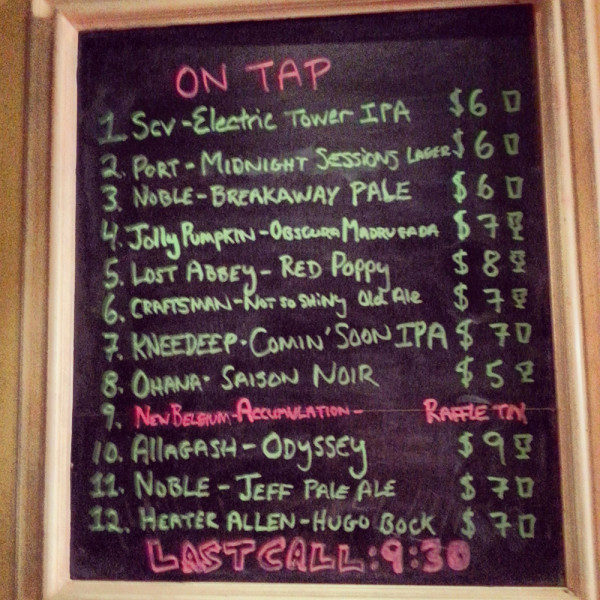 ON TAP
1. SCV - Electric Tower IPA $6
2. PORT - MIDNIGHT SESSIONS LAGER $6
3. NOBLE - BREAKAWAY PALE $6
4. Jolly Pumpkin - Obscura Madrugada $7
5. LOST ABBEY - RED Poppy $8
6. CRAFTSMAN - NOT SO SHINY Old Ale $7
7. KNEEDEEP - COMIN' SOON IPA $7
8. OHANA - SAISON NOIR $5
9. NEW BELGIUM - ACCUMULATION - RAFFLE TIX
10. Allagash - ODYSSEY $9
11. NOBLE - JEFF PALE ALE $7
12. HEATER ALLEN - HUGO BOCK $7
LAST CALL: 9:30